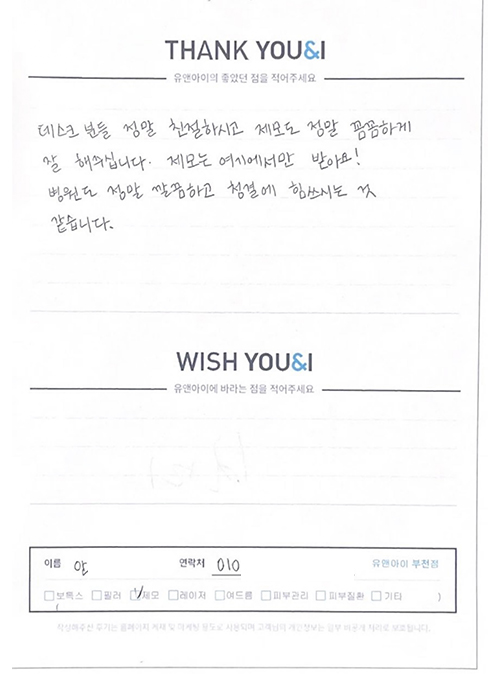 THANK YOU&I
유앤아이의 좋았던 점을 적어주세요
데스크 분들 정말 친절하시고 제모도 정말 꼼꼼하게
잘 해주십니다. 제모는 여기에서만 받아요!
병원도 정말 깔끔하고 청결에 힘쓰시는 것
같습니다.
WISH YOU&I
유앤아이에 바라는 점을 적어주세요
이름 안 연락처 010 유앤아이 부천점
보톡스 필러 제모 레이저 여드름 피부관리 피부질환 기타 )
작성해주신 후기는 홈페이지 게재 및 마케팅 용도로 사용되며 고객님의 개인정보는